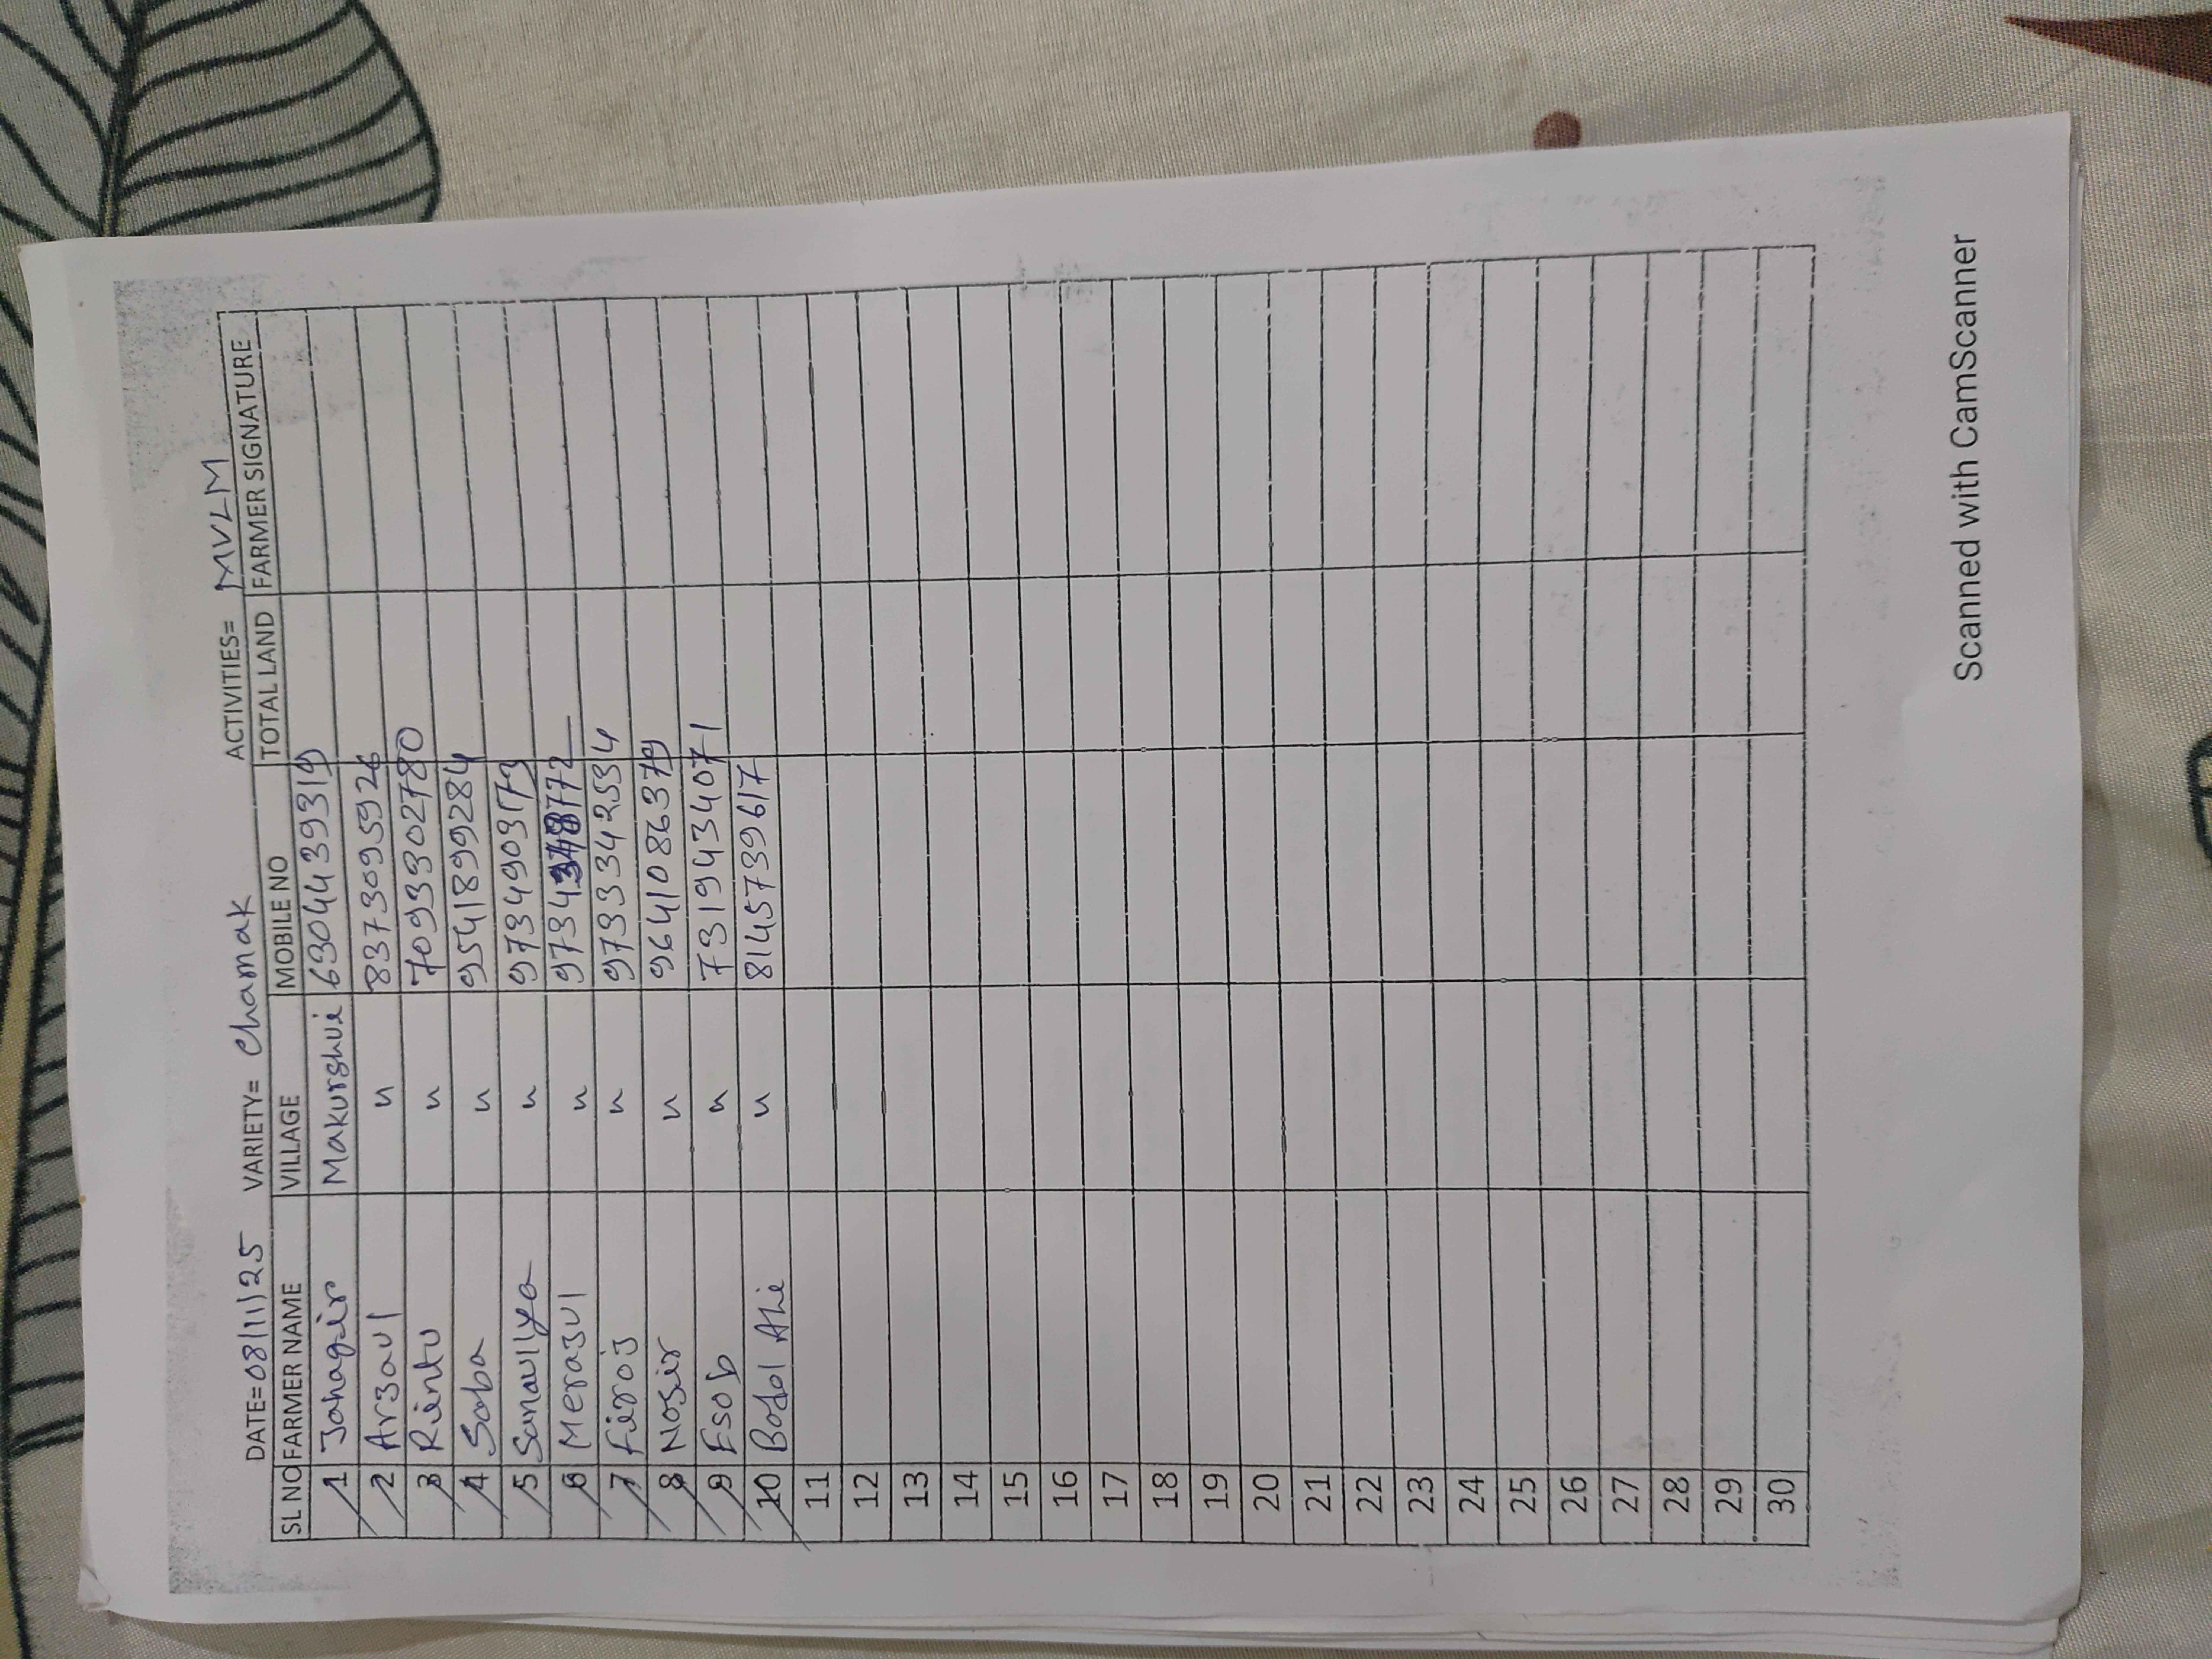 DATE=08/11/25 VARIETY= Chamak ACTIVITIES= MVLM
SL NO FARMER NAME VILLAGE MOBILE NO TOTAL LAND FARMER SIGNATURE
1 Jahagir Makurshui 6304439319
2 Arzaul " 8373095926
3 Rientu " 7093302780
4 Saba " 9541899284
5 Sanaullya " 9734903173
6 Merazul "
7 Firoj " 9733342534
8 Nosir " 9641086379
9 Esob " 7319434071
10 Bodol Ali " 8145739617
11
12
13
14
15
16
17
18
19
20
21
22
23
24
25
26
27
28
29
30
Scanned with CamScanner